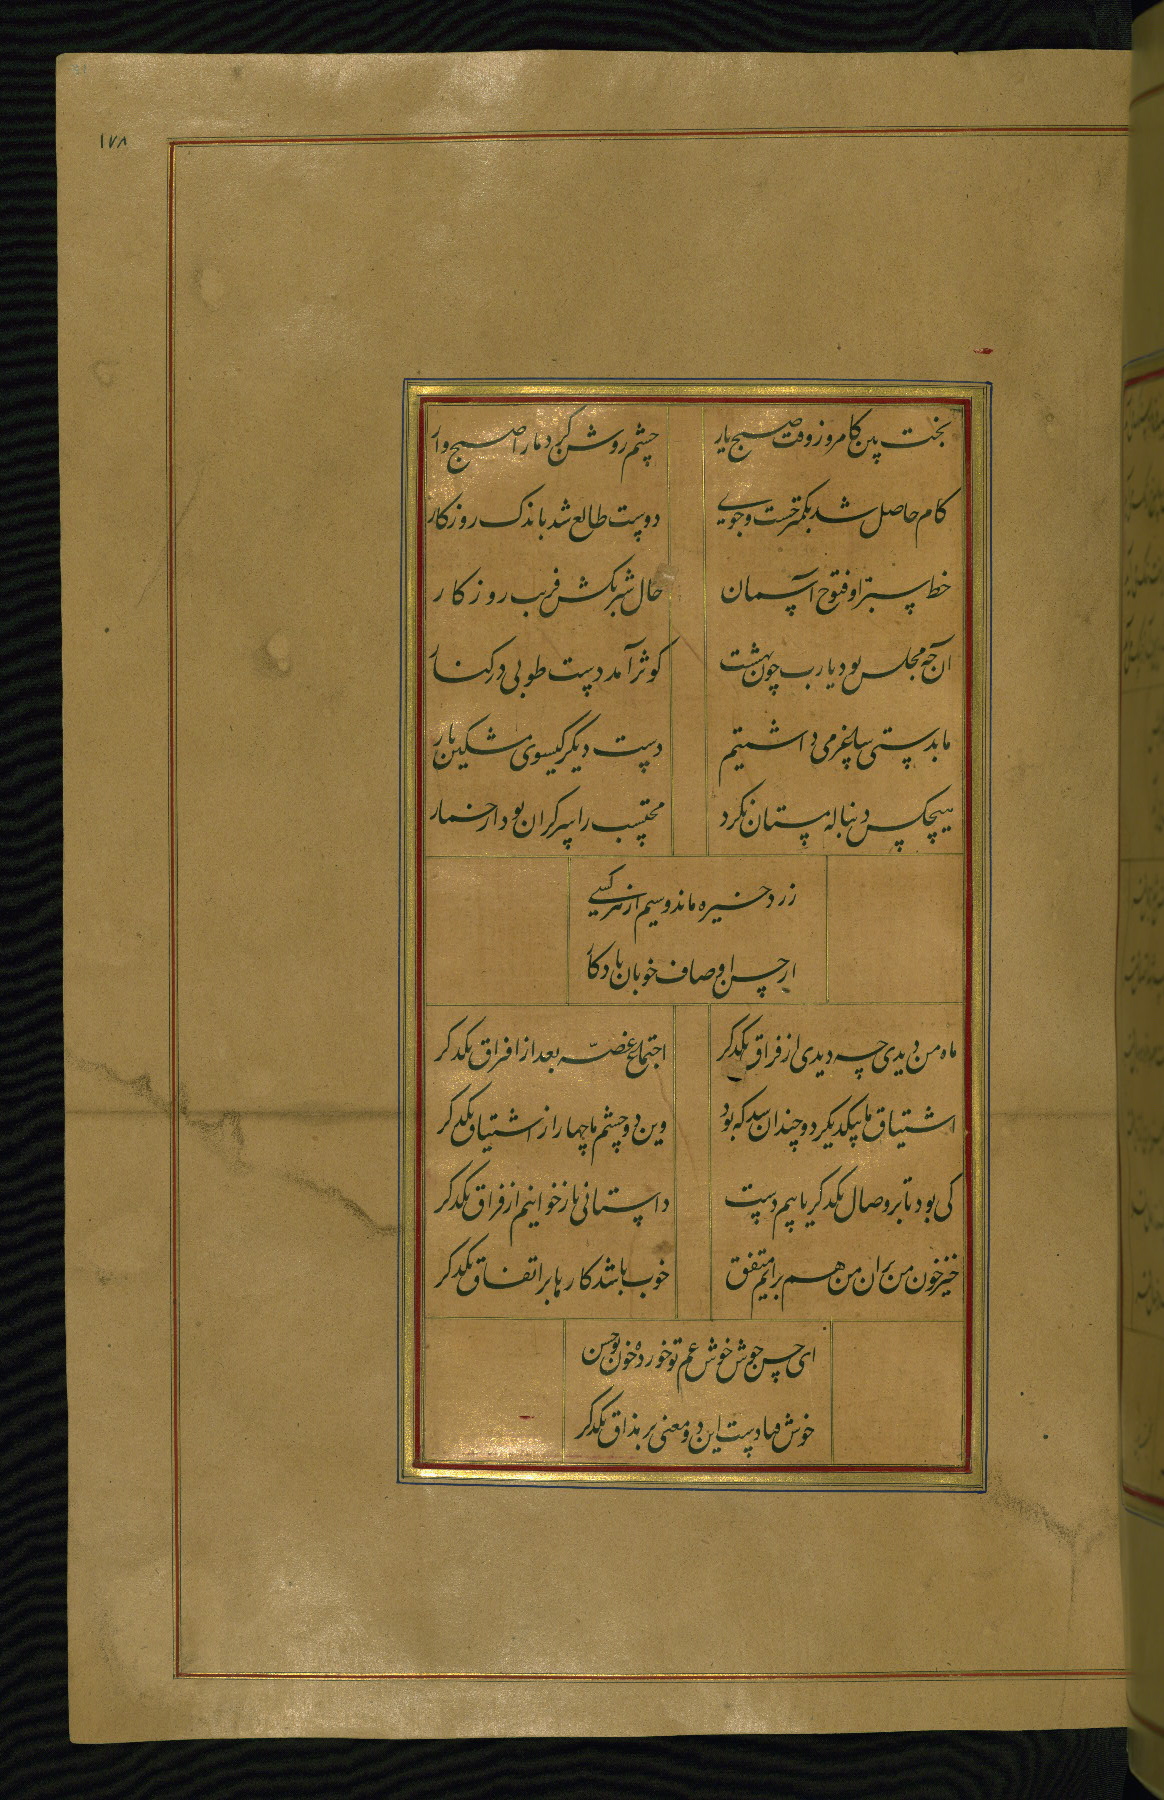 ۱۷۸
بخت بین کامروز وقت صبح یار
چشم روشن کرد ما را صبح وار
کام حاصل شد بکمتر جست و جوی
دوست طالع شد باندک روزکار
خط سبز او فتوح آسمان
خال شبرنکش فریب روزکار
آن چه مجلس بود یا رب چون بهشت
کوثر آمد دست طوبی در کنار
ما بدستی ساغر می داشتیم
دست دیکر کیسوی مشکین یار
هیچکس دنباله مستان نکرد
محتسب را سر کران بود از خمار
زر ذخیره ماند و سیم از هر کسی
از حسن اوصاف خوبان یادکار
ماه من دیدی چه دیدی از فراق یکدکر
اجتماع غصّه بعد از افتراق یکدکر
اشتیاق ما بیکدیکر دو چندان شد که بود
وین دو چشم ما چهار از اشتیاق یکدکر
کی بود تا بر وصال یکدکر یابیم دست
داستانی باز خوانیم از فراق یکدکر
خیز خون من بران من هم برانم متفق
خوب باشد کارها بر اتفاق یکدکر
ای حسن خوش خوش غم تو خورده خون تو حسن
خوش فتادست این دو معنی بر مذاق یکدکر